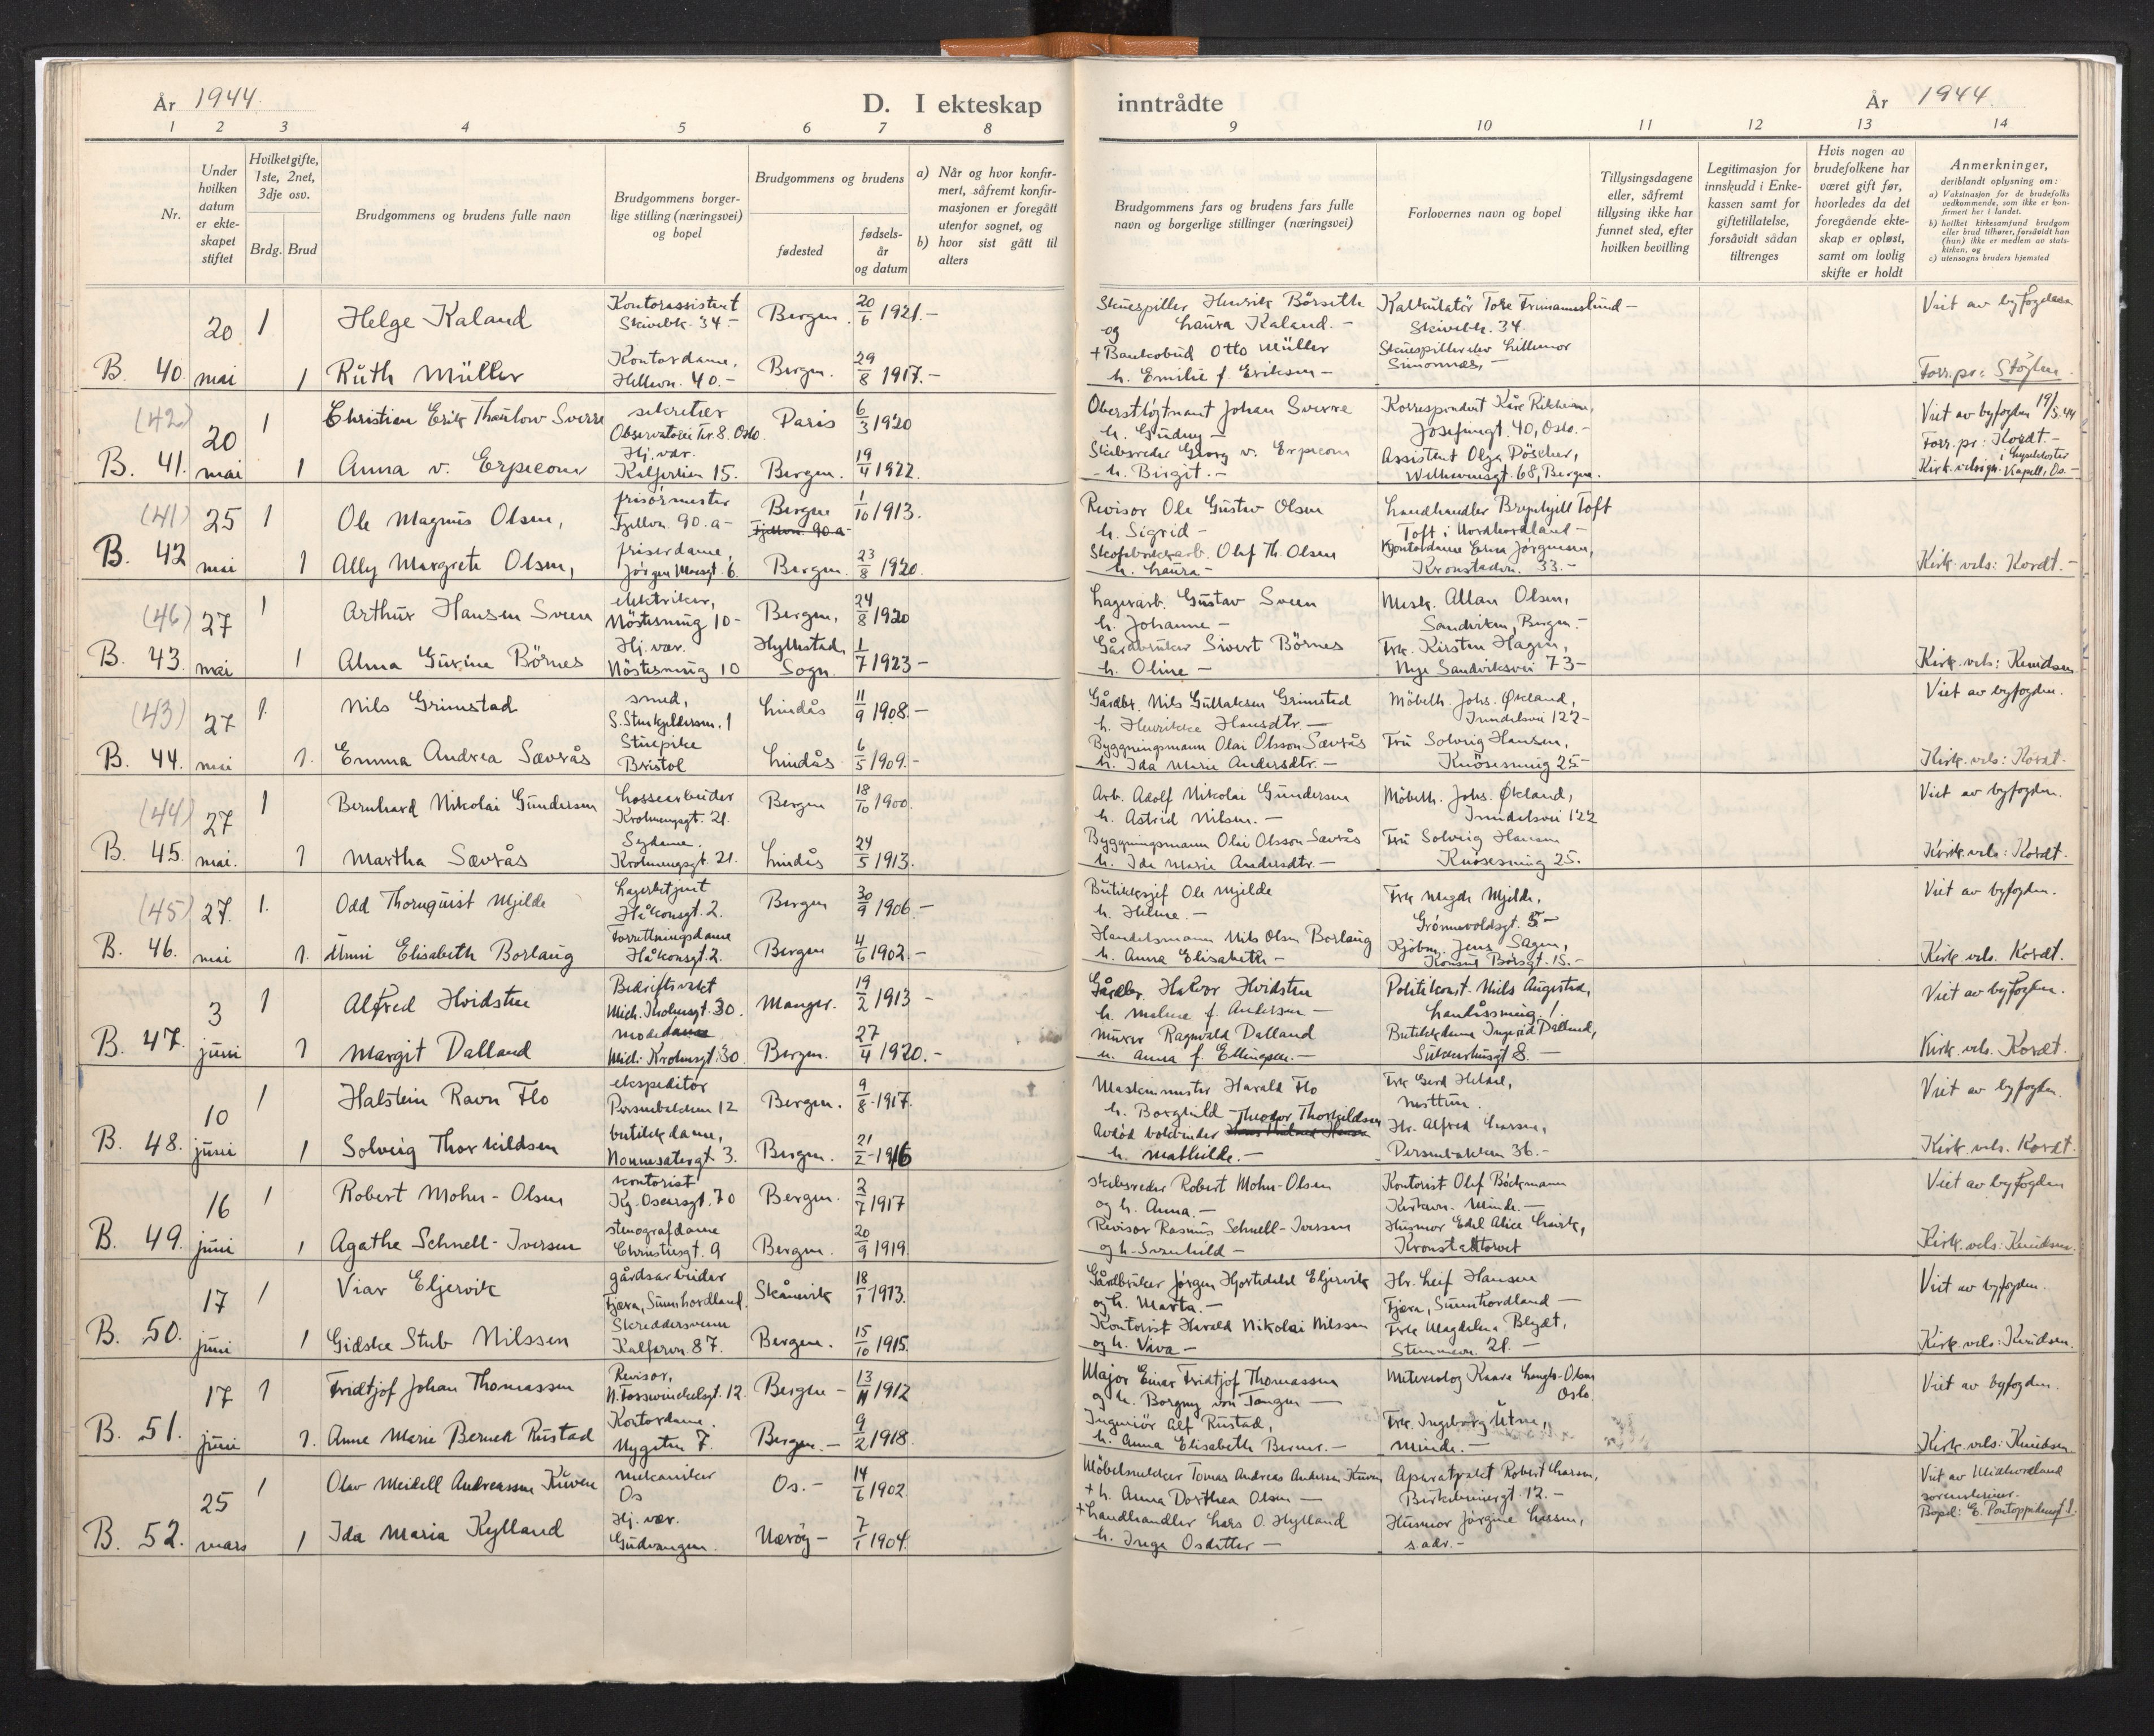 År 1944.
D. I ekteskap
inntrådte
År 1944
1 2 3 4 5 6 7 8
9 10 11 12 13 14
Nr.
Under hvilken datum er ekte-skapet stiftet
Hvilket gifte, 1ste, 2net, 3dje osv.
Brdg. Brud
Brudgommens og brudens fulle navn
Brudgommens borger-
lige stilling (næringsvei)
og bopel
Brudgommens og brudens
fødested
fødsels-
år
og datum
a) Når og hvor konfir-
mert, såfremt konfir-
masjonen er foregått
utenfor sognet, og
b) hvor sist gått til
alters
Brudgommens fars og brudens fars fulle
navn og borgerlige stillinger (næringsvei)
Forlovernes navn og bopel
Tillysingsdagene
eller, såfremt
tillysing ikke har
funnet sted, efter
hvilken bevilling
Legitimasjon for
innskudd i Enke-
kassen samt for
giftetillatelse,
forsåvidt sådan
tiltrenges
Hvis nogen av
brudefolkene har
været gift før,
hvorledes da det
foregående ekte-
skap er opløst,
samt om lovlig
skifte er holdt
Anmerkninger,
deriblandt oplysning om:
a) Vaksinasjon for de brudefolks
vedkommende, som ikke er kon-
firmert her i landet.
b) hvilket kirkesamfund brudgom
eller brud tilhører, forsåvidt han
(hun) ikke er medlem av stats-
kirken, og
c) utensogns bruders hjemsted
20 1 Helge Kaland
Kontorassistent
Skivebk. 34 –
Bergen. 20/6 1921. –
Skuespiller Henrik Börseth
og Laura Kaland. –
Kalkulatör Tore
Skivebk. 34.
Viet av byfogden
B. 40. mai 1 Ruth Müller
Kontordame,
Helleve. 40. –
Bergen. 29/8 1917. –
+ Bankobud Otto Müller
h. Emilie f. Eriksen –
Skuespillerelev Lillemor
Simonnæs, –
Forr. pr:
(42) 20 1 Christian Erik Thaulow Sverre
sekretær
Observatorie Tr. 8. Oslo.
Paris 6/3 1920
Oberstløjtnant Johan Sverre
h. Gudny –
Korrespondent Kåre
Josefinegt. 40, Oslo. –
Viet av byfogden 19/5.44
Forr. pr: Kordt. –
B. 41. mai 1 Anna v. Erpecom
Hj. vær.
Kalfarlien 15.
Bergen. 19/4 1922.
Skibsreder Georg v. Erpecom
h. Birgit. –
Assistent Olga
Welhavensgt. 68, Bergen.
Kirk. velsign. i Lysekloster Kapell, Os. –
(41) 25 1 Ole Magnus Olsen,
frisörmester
Fjellvn. 90. a –
Bergen 1/10 1913.
Fjellvn. 90 a
Revisor Ole Gustav Olsen
h. Sigrid –
Landhandler Brynhjell Toft
Toft i Nordhordland –
B. 42 mai 1 Ally Margrete Olsen,
friserdame,
Jörgen Moesgt. 6.
Bergen. 23/8 1920.
Skofabrikkarb. Olaf Th. Olsen
h. Laura –
Kontordame Erna Jörgensen,
Kronstadvn. 33. –
Kirk. vels: Kordt. –
(46) 27 1 Arthur Hansen Sveen
elektriker,
Nöstesmug 10 –
Bergen, 24/8 1920
Lagerarb. Gustav Sveen
h. Johanne –
Mesk. Allan Olsen,
Sandviken, Bergen. –
B. 43. mai 1 Alma Gurine Börnes
Hj. vær.
Nöstesmug 10
Hyllestad, Sogn. 1/7 1923 –
Gårdbruker Sivert Börnes
h. Oline –
Frk. Kirsten Hagen,
Nye Sandviksvei 73 –
Kirk. vels: Knudsen
(43) 27 1. Nils Grimstad
smed,
S. Sturkjeldersm. 1
Lindås 11/9 1908. –
Gårdbr. Nils Gullaksen Grimstad
h. Henrikke Hansdtr. –
Möbelh. Johs. Økland,
Inndalsvei 122 –
Viet av byfogden.
B. 44. mai 1. Emma Andrea Sævrås
Stuepike
Bristol
Lindås 6/5 1909. –
Byggningsmann Olai Olsson Sævrås
h. Ida Marie Andersdtr. –
Fru Solveig Hansen,
Knösesmug 25 –
Kirk. vels: Kordt.
(44) 27 1 Bernhard Nikolai Gundersen
Lossearbeider
Krohnengsgt. 21.
Bergen 18/10 1900.
Arb. Adolf Nikolai Gundersen
h. Astrid Nilsen. –
Möbelh. Johs. Økland,
Inndalsvei 122
Viet av byfogden.
B. 45. mai. 1 Martha Sævrås
Sydame.
Krohnengsgt. 21.
Lindås 24/5 1913.
Byggningsmann Olai Olsson Sævrås
h. Ida Marie Andersdtr. –
Fru Solveig Hansen
Knösesmug 25.
Kirk. vels: Kordt.
(45) 27. 1. Odd Thornquist Mjelde
Lagerbetjent
Håkonsgt. 2.
Bergen 30/9 1906. –
Butikksjef Ole Mjelde
h. Helene. –
Frk Magda Mjelde,
Grönnevoldsgt. 5 –
Viet av byfogden.
B. 46. mai 1. Unni Elisabeth Borlaug
Forrettningsdame
Håkonsgt. 2.
Bergen 4/6 1902. –
Handelsmann Nils Olsen Borlaug
h. Anna Elisabeth –
Kjöbm. Jens Sagen,
Konsul Börsgt. 15. –
Kirk. vels. Kordt.
3 1 Alfred Hvidsten
Bedriftsvakt
Mich. Krohnsgt. 30.
Manger. 19/2 1913 –
Gårdbr. Halvor Hvidsten
h. Malene f. Andersen –
Politikonst. Nils Augestad,
Landåssmug. 1.
Viet av byfogden.
B. 47. juni 1 Margit Dalland
modedame
Mich. Krohnsgt. 30
Bergen. 27/4 1920. –
Murer Ragnvald Dalland
h. Anna f. Ellingsen. –
Butikkdame Ingrid Dalland,
Sukkerhusgt 8. –
Kirk. vels. Kordt.
10 1 Halstein Ravn Flo
ekspeditör
Persenbakken 12
Bergen. 9/8 1917.
Maskinmester Harald Flo
h. Borghild –
Frk Gerd Heldal,
Nesttun.
Viet av byfogden.
B. 48. juni 1 Solveig Thorkildsen
butikkdame,
Nonnesætergt 3.
Bergen. 21/2 – 1916
Avdöd bokbinder Theodor Thorkildsen
h. Mathilde. –
Hr. Alfred Larsen,
Persenbakken 36. –
Kirk. vels. Kordt.
16 1 Robert Mohn-Olsen
kontorist
Kg. Oscarsgt. 70
Bergen. 2/7 1917
Skibsreder Robert Mohn-Olsen
og h. Anna. –
Kontorist Olaf Böckmann
Kirkevn. Minde. –
Viet av byfogden
B. 49. juni 1 Agathe Schnell-Iversen
stenografdame
Christiesgt. 9
Bergen. 20/9 1919.
Revisor Rasmus Schnell-Iversen
og h. Svanhild –
Husmor Edel Alice
Kronstadtorvet
Kirk. vels: Knudsen.
17 1 Viar Eljervik
gårdsarbeider
Fjæra, Sunnhordland.
Skånevik 18/1 1913.
Gårdbruker Jörgen Hjortedahl Eljervik
og h. Marta. –
Hr. Leif Hansen
Fjæra, Sunnhordland –
Viet av byfogden.
B. 50. juni 1 Gidske Stub Nilssen
Skreddersvenn
Kalfarvn. 87.
Bergen. 15/10 1915.
Kontorist Harald Nikolai Nilssen
og h. Viva –
Frk Magdalena Blydt,
Stemmevn. 21. –
Kirk. vels: Knudsen.
17 1 Fridtjof Johan Thomassen
Revisor,
N. Fosswinckelsgt. 12.
Bergen – 13/11 1912
Major Einar Fridtjof Thomassen
og h. Borgny von Tangen –
Meteorolog Kaare
Oslo.
Viet av byfogden.
B. 51. juni 1. Anne Marie Berner Rustad
Kontordame.
Nygaten 7.
Bergen. – 9/2 1918.
Ingeniör Alf Rustad,
h. Anna Elisabeth Berner. –
Frk. Ingeborg Utne,
Minde. –
Kirk. vels: Knudsen
25 1 Olav Meidell Andreassen Kuven
mekaniker
Os
Os. – 14/6 1902
Möbelsnekker Tomas Andreas Andersen Kuven
+ h. Anna Dorthea Olsen –
Robert Larsen,
Birkebeinergt. 12. –
Viet av Midhordland
sorenskriver.
B. 52. mars 1 Ida Maria Hylland
Hj. vær.
Gudvangen.
Nærøy – 7/1 1904.
+ Landhandler Lars O. Hylland
h. Inge Osdtter –
Husmor Jörgine Larsen,
s. adr. –
Bopel: E. Pontoppidansgt 1.